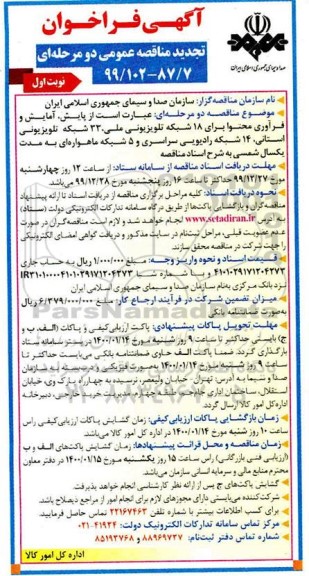 آگهی فراخوان
تجدید مناقصه عمومی دو مرحله‌ای
۹۹/۱۰۲-۸۷/۷
نوبت اول
صدا و سیمای جمهوری اسلامی ایران
نام سازمان مناقصه‌گزار: سازمان صدا و سیمای جمهوری اسلامی ایران
موضوع مناقصه دو مرحله‌ای: عبارت است از پایش، آمایش و
فرآوری محتوا برای ۱۸ شبکه تلویزیونی ملی، ۳۳ شبکه تلویزیونی
استانی، ۱۴ شبکه رادیویی سراسری و ۵ شبکه ماهواره‌ای به مدت
یکسال شمسی به شرح اسناد مناقصه
مهلت دریافت اسناد مناقصه از سامانه ستاد: از ساعت ۱۲ روز چهارشنبه
مورخ ۹۹/۱۲/۲۷ حداکثر تا ساعت ۱۶ روز پنجشنبه مورخ ۹۹/۱۲/۲۸ می‌باشد.
نحوه دریافت اسناد: کلیه مراحل برگزاری مناقصه از دریافت اسناد تا ارائه پیشنهاد
مناقصه‌گران و بازگشایی پاکت‌ها از طریق درگاه سامانه تدارکات الکترونیکی دولت (ستاد)
www.setadiran.ir انجام خواهد شد و لازم است مناقصه‌گران در صورت
عدم عضویت قبلی، مراحل ثبت‌نام در سایت مذکور و دریافت گواهی امضای الکترونیکی
را جهت شرکت در مناقصه محقق سازند.
قیمت اسناد و نحوه واریز وجه: مبلغ ۱/۰۰۰/۰۰۰ ریال به حساب جاری
۴۱۰۱۰۲۹۱۷۱۲۰۴۲۷۳ و با شماره شبا IR۳۱۰۱۰۰۰۰۴۱۰۱۰۲۹۱۷۱۲۰۴۲۷۳
نزد بانک مرکزی به‌نام سازمان صدا و سیمای جمهوری اسلامی ایران
میزان تضمین شرکت در فرآیند ارجاع کار: مبلغ ۶/۳۷۹/۰۰۰/۰۰۰ ریال
به‌صورت ضمانتنامه بانکی
مهلت تحویل پاکات پیشنهادی: پاکت ارزیابی کیفی و پاکات (الف، ب و
ج) بایستی حداکثر تا ساعت ۹ روز شنبه مورخ ۱۴۰۰/۰۱/۱۴ در بستر سامانه ستاد
بارگذاری گردد. ضمنا پاکت الف حاوی ضمانتنامه بانکی می‌بایست حداکثر تا
ساعت ۹ روز شنبه مورخ ۱۴۰۰/۰۱/۱۴ به‌صورت فیزیکی و دستی به سازمان
صدا و سیما به آدرس: تهران، خیابان ولیعصر، نرسیده به چهارراه پارک وی، خیابان
اداره کل امور کالا ارسال گردد.
زمان بازگشایی پاکات ارزیابی کیفی: زمان گشایش پاکات ارزیابی کیفی راس
ساعت ۱۰ روز شنبه مورخ ۱۴۰۰/۰۱/۱۴ در اداره کل امور کالا می‌باشد.
زمان مناقصه و محل قرائت پیشنهادها: زمان گشایش پاکت‌های الف و ب
(ارزیابی فنی بازرگانی) راس ساعت ۱۵ روز یکشنبه مورخ ۱۴۰۰/۰۱/۱۵ در دفتر معاون
محترم منابع مالی و سرمایه انسانی سازمان می‌باشد.
گشایش پاکت‌های ج پس از ارائه نظر کارشناسی انجام خواهد پذیرفت.
شرکت‌کننده می‌بایستی دارای مجوزهای لازم برای انجام امور از مراجع ذیصلاح باشد.
برای کسب اطلاعات بیشتر با شماره تلفن ۲۲۱۶۷۴۶۳ تماس حاصل فرمایید.
مرکز تماس سامانه تدارکات الکترونیک دولت: ۴۱۹۳۴-۰۲۱
شماره تماس دفتر ثبت‌نام: ۸۸۹۶۹۷۳۷ و ۸۵۱۹۳۷۶۸
اداره کل امور کالا